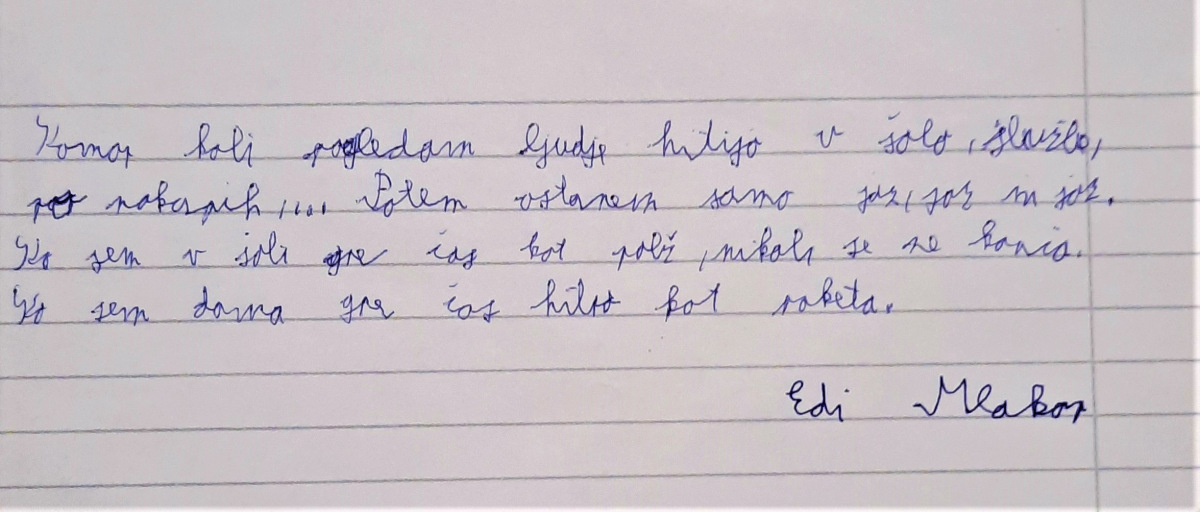 Komor koli pogledam ljudje hitijo v šolo, službo,
po nakupih,... Potem ostanem samo jaz, jaz in jaz.
Ko sem v šoli gre čas kot polž, nikoli se ne konča.
Ko sem doma gre čas hitro kot raketa.
Edi Mlakar